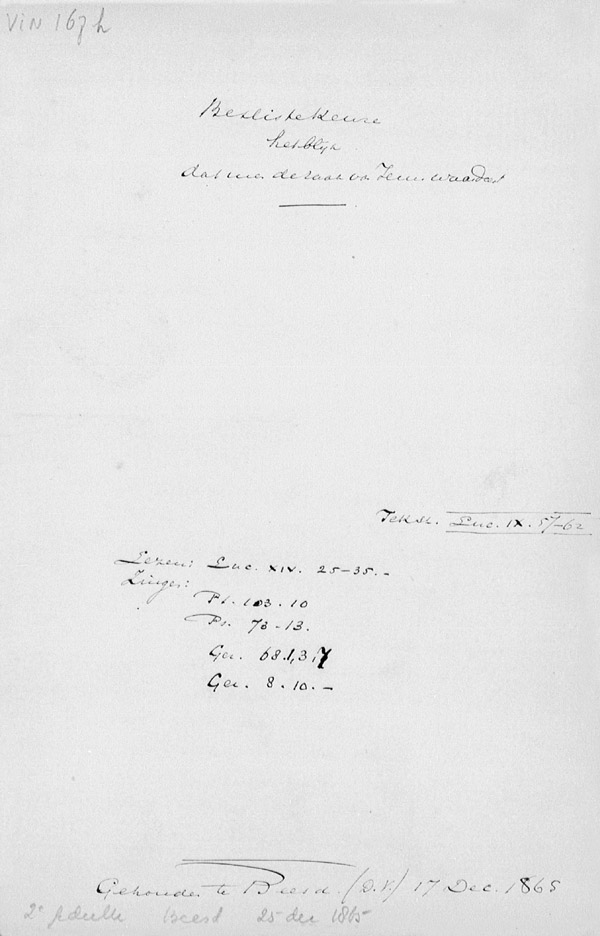 VIN 167 h
Besliste Keuze
het blijk
dat men de zaak van Jezus waardeert
Tekst. Luc. IX. 57-62
Lezen: Luc. XIV. 25-35.-
Zingen:
Ps. 103.10
Ps. 73-13.
Gez. 68.1,3,7
Gez. 8.10.-
Gehouden te Beesd. (D.V.) 17 Dec. 1865
2e Beesd 25 dec 1865